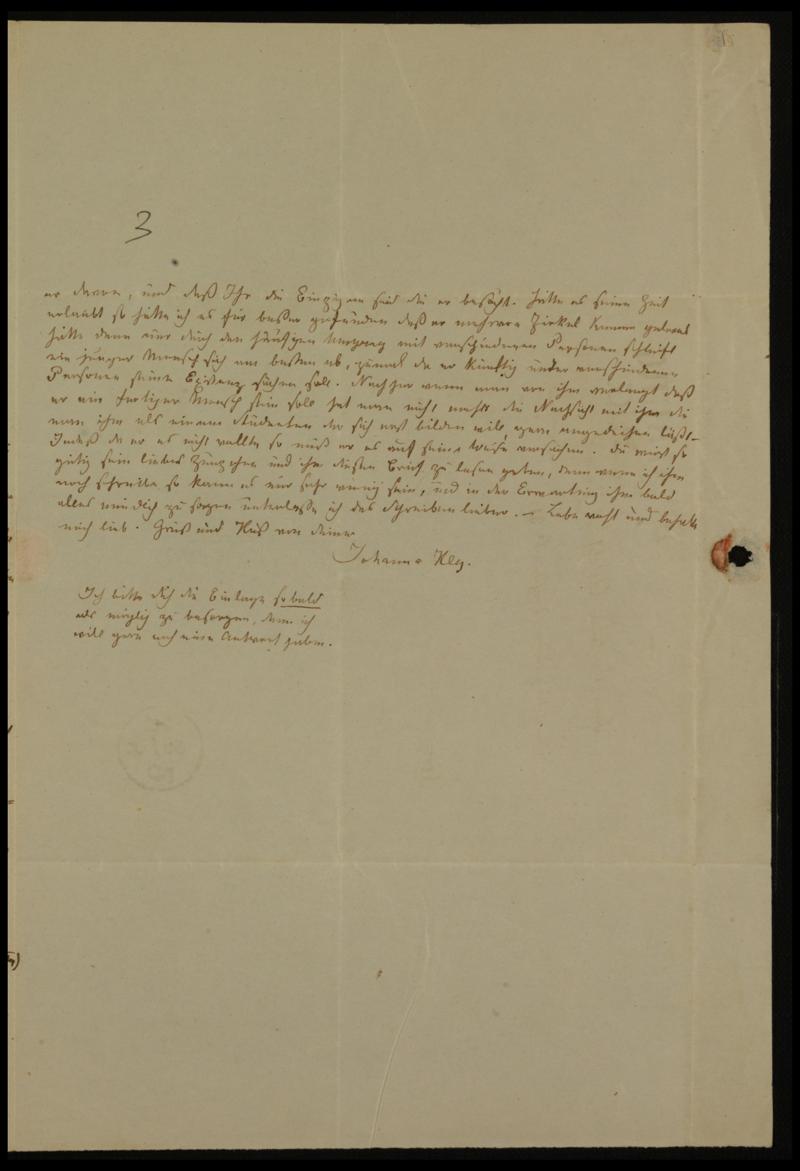 3
er davon, und daß Ihr die Einzigen seid die er besucht. Hätte es seine Zeit
erlaubt so hätte ich es für besser gefunden daß er mehrere Zirkel kennen gelernt
hätte denn nur durch den häufigen Umgang mit verschiedenen Personen schleift
ein junger Mensch sich am besten ab, zumal da er künftig unter verschiedenen
Personen seine Existenz suchen soll. Nachher wenn man von ihm verlangt daß
er ein fertiger Mensch sein soll hat man nicht mehr die Nachsicht mit ihm die
man ihm als einem Studenten der sich erst bilden will, gern angedeihen läßt.—
Indeß da er es nicht wollte so muß er es auf seine Weise versuchen. Du wirst so
gütig sein liebes und ihm diesen Brief zu lesen geben, denn wenn ich ihm
noch schreibe so kann es nur sehr wenig sein, und in der Erwartung ihm bald
alles mündlich zu sagen unterlasse ich das Schreiben lieber. — Lebe wohl und behalte
mich lieb. Gruß und Kuß von Deiner
Johanna
Ich bitte dich die Einlage so bald
als möglich zu besorgen, denn ich
will gern noch eine Antwort haben.